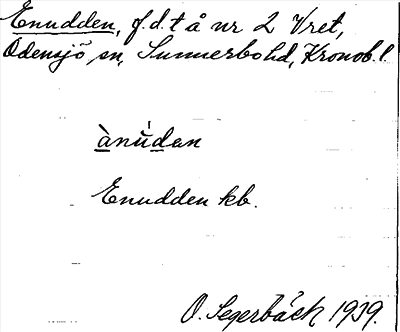 Enudden, f.d. t å nr 2 Vret,
Odensjö sn, Sunnerbo hd, Kronob. l.
ànúdan
Enudden kb.
O. Segerbäck 1939.